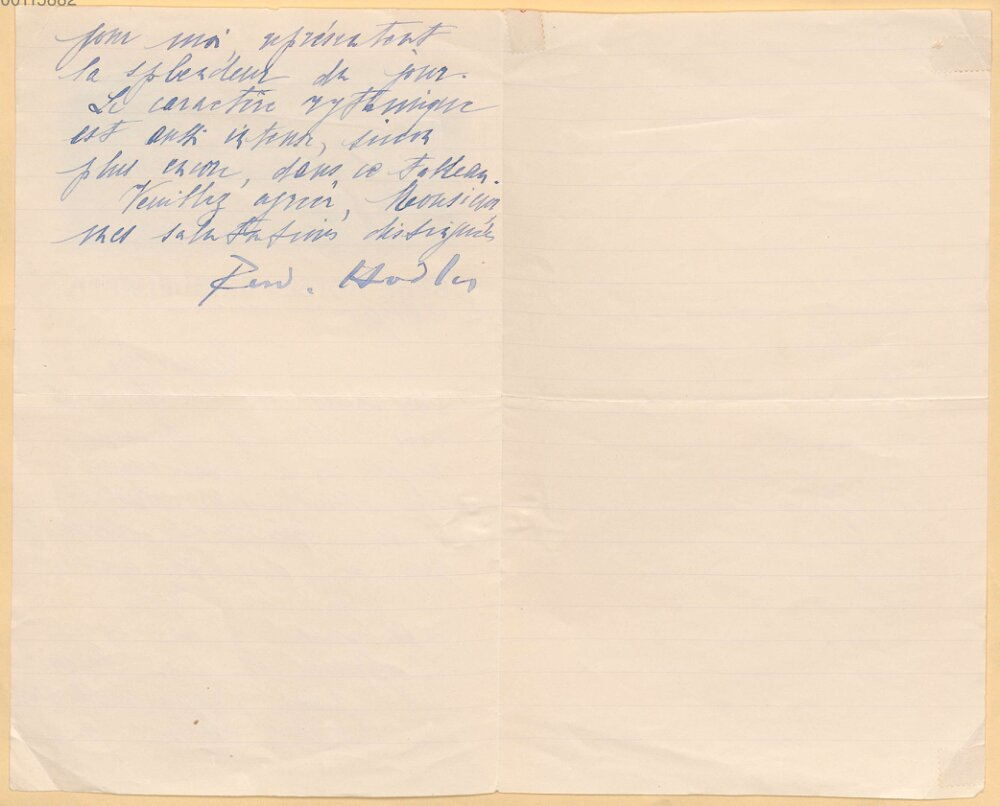 00115882
pour moi, représentent
la splendeur du jour.
Le caractère rythmique
est aussi intense, sinon
plus encore, dans ce tableau.
Veuillez agréer, Monsieur
mes salutations distinguées
Ferd. Hodler